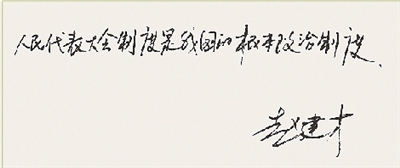 人民代表大会制度是我国的根本政治制度.
赵建才